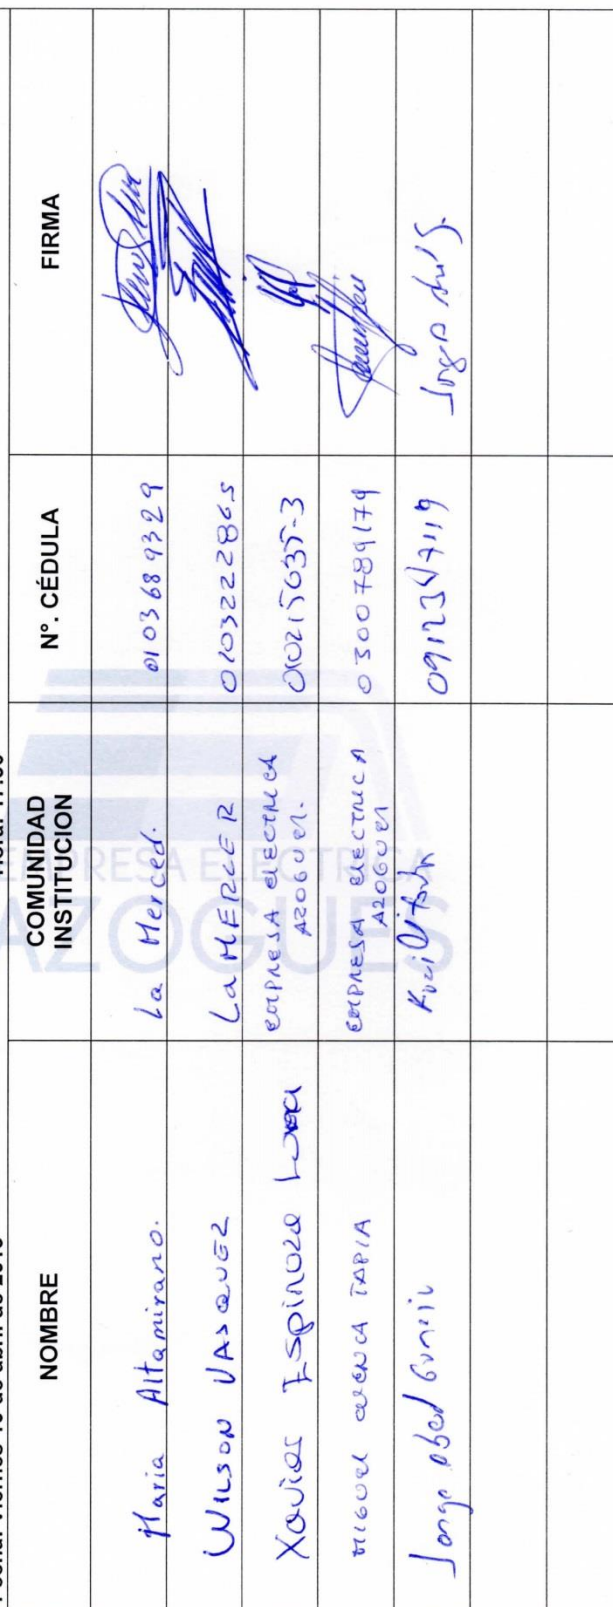 NOMBRE
COMUNIDAD
INSTITUCION
N°. CÉDULA
FIRMA
Maria Altamirano.
La Merced.
0103689329
WILSON VASQUEZ
La MERCED
0103222865
Xavier Espinoza
EMPRESA ELECTRICA
AZOGUES.
010215035-3
MIGUEL CUENCA TAPIA
EMPRESA ELECTRICA
AZOGUES
0300789179
Jorge Abad
EMPRESA ELECTRICA
AZOGUES